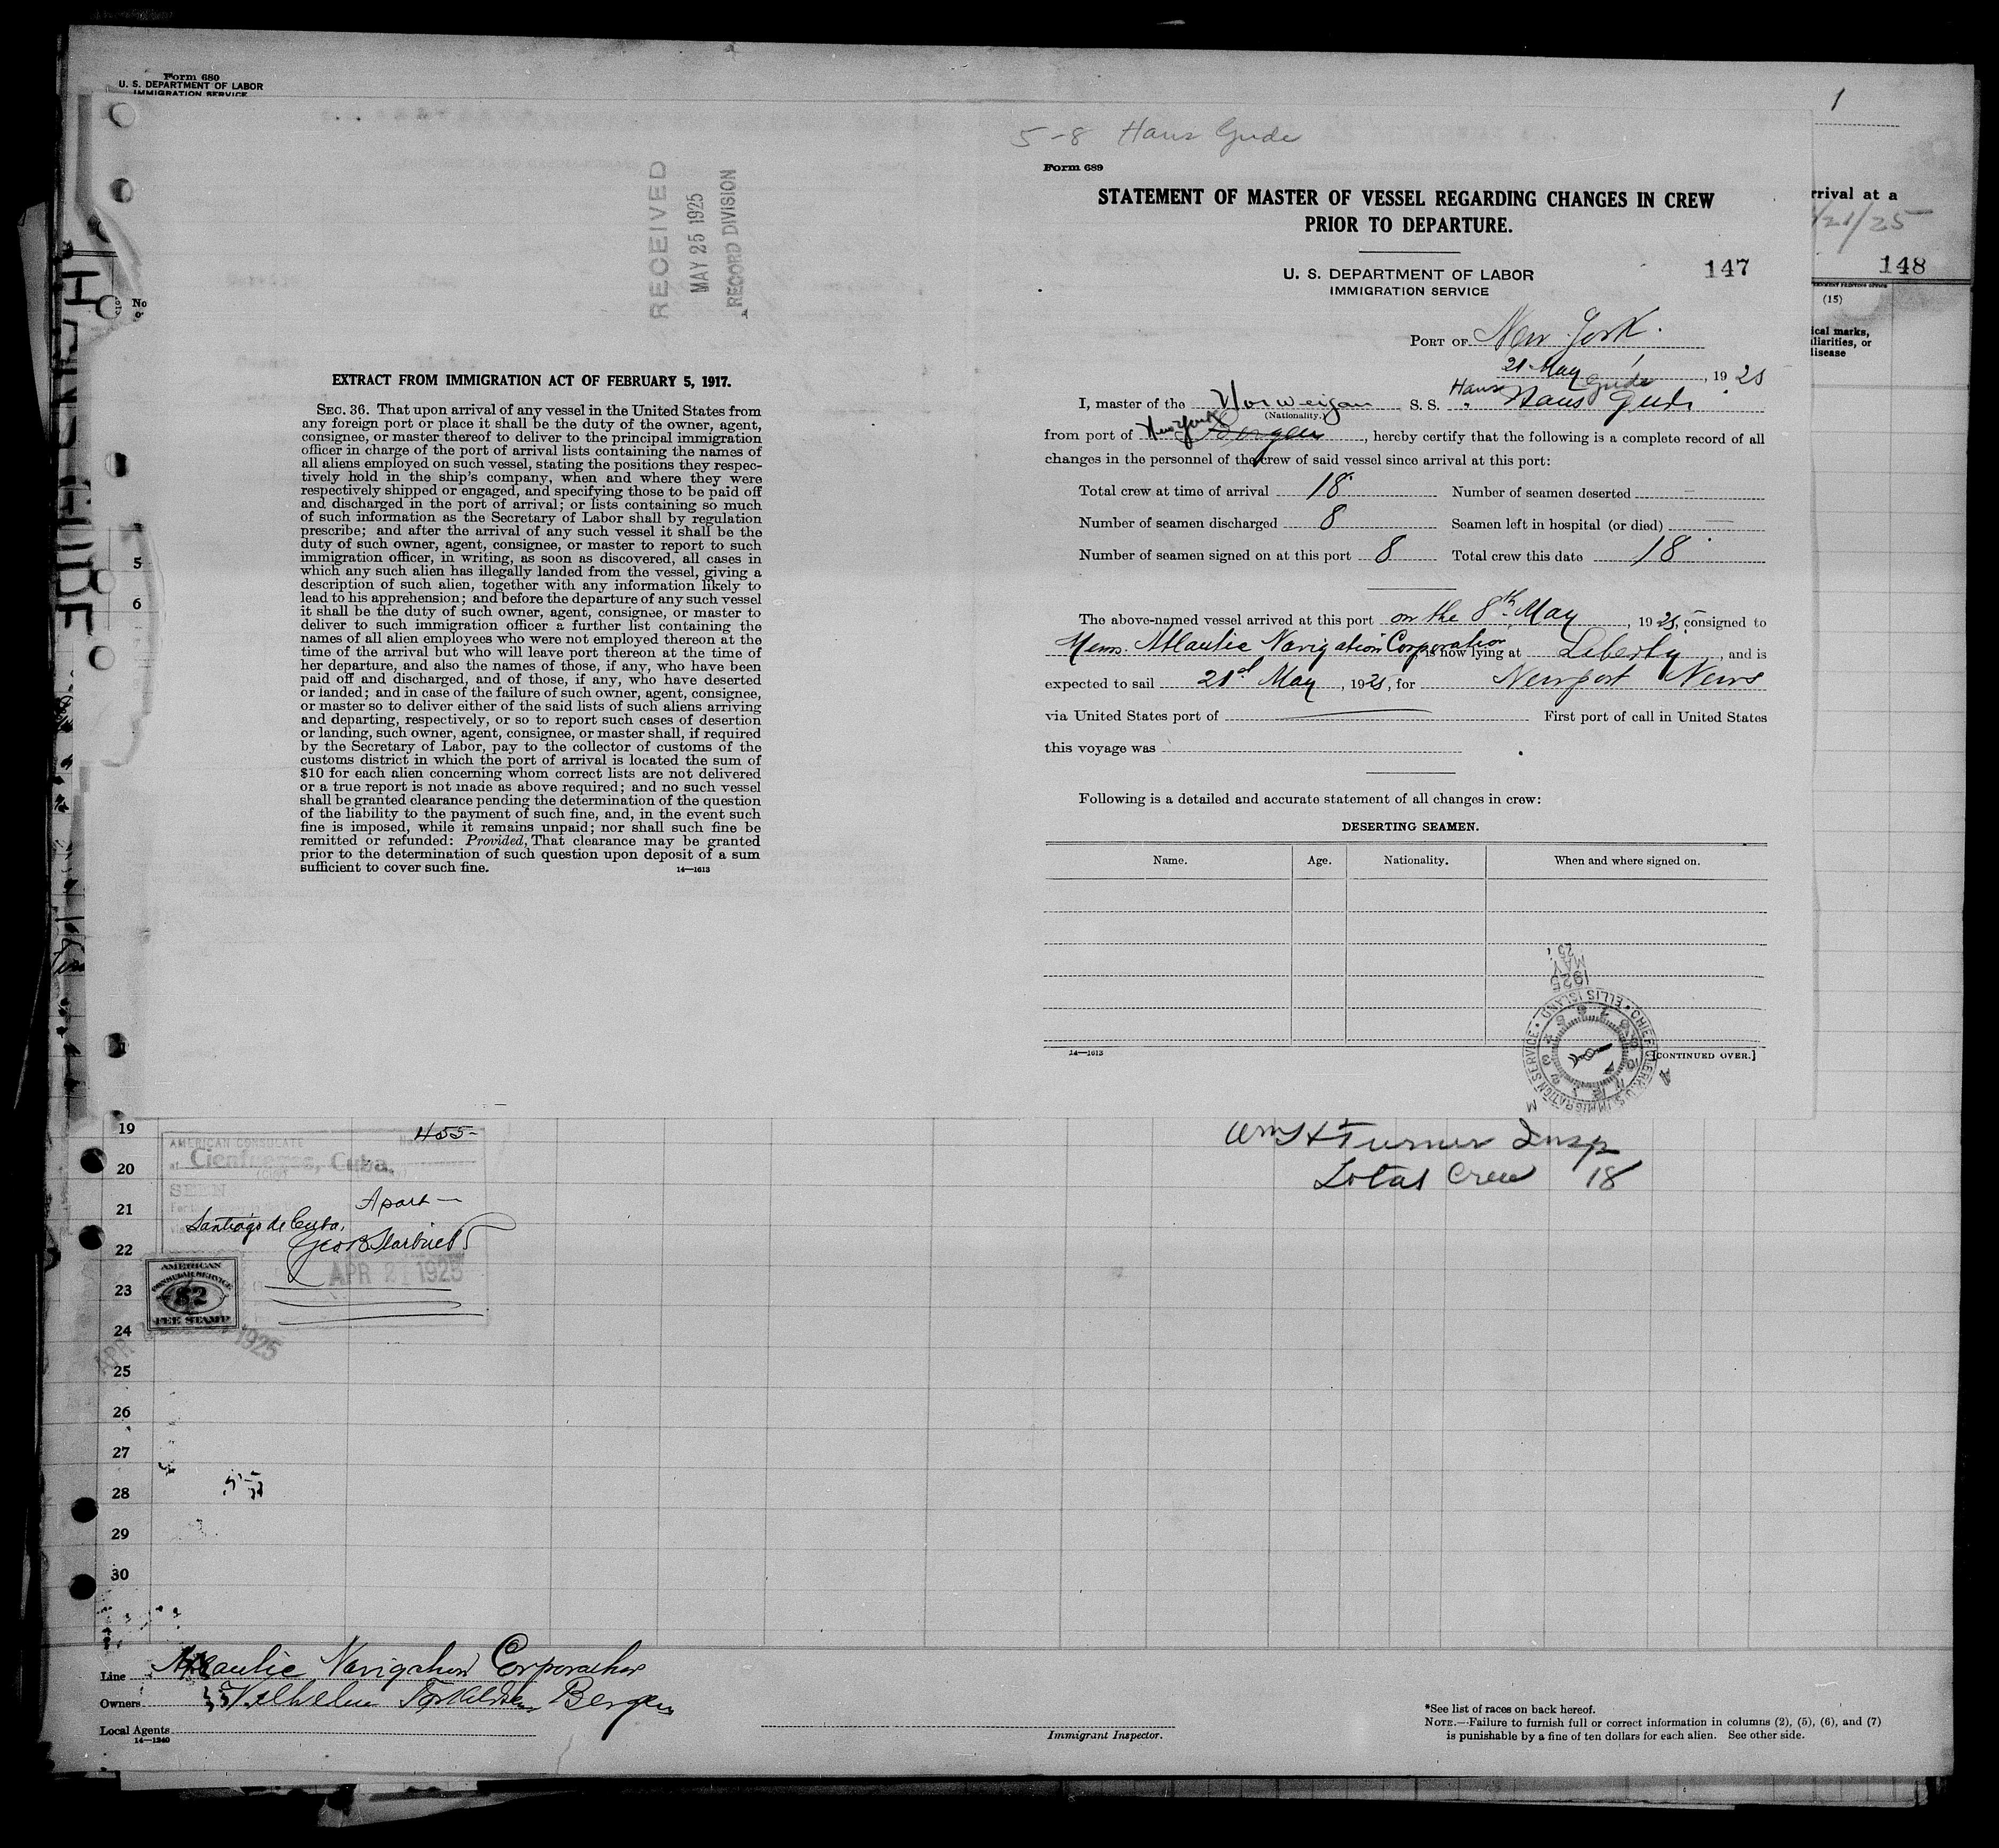 Form 680
U. S. DEPARTMENT OF LABOR
IMMIGRATION SERVICE
HANS GUDE
No
5
6
RECEIVED
MAY 25 1925
RECORD DIVISION
EXTRACT FROM IMMIGRATION ACT OF FEBRUARY 5, 1917.
SEC. 36. That upon arrival of any vessel in the United States from
any foreign port or place it shall be the duty of the owner, agent,
consignee, or master thereof to deliver to the principal immigration
officer in charge of the port of arrival lists containing the names of
all aliens employed on such vessel, stating the positions they respec-
tively hold in the ship's company, when and where they were
respectively shipped or engaged, and specifying those to be paid off
and discharged in the port of arrival; or lists containing so much
of such information as the Secretary of Labor shall by regulation
prescribe; and after the arrival of any such vessel it shall be the
duty of such owner, agent, consignee, or master to report to such
immigration officer, in writing, as soon as discovered, all cases in
which any such alien has illegally landed from the vessel, giving a
description of such alien, together with any information likely to
lead to his apprehension; and before the departure of any such vessel
it shall be the duty of such owner, agent, consignee, or master to
deliver to such immigration officer a further list containing the
names of all alien employees who were not employed thereon at the
time of the arrival but who will leave port thereon at the time of
her departure, and also the names of those, if any, who have been
paid off and discharged, and of those, if any, who have deserted
or landed; and in case of the failure of such owner, agent, consignee,
or master so to deliver either of the said lists of such aliens arriving
and departing, respectively, or so to report such cases of desertion
or landing, such owner, agent, consignee, or master shall, if required
by the Secretary of Labor, pay to the collector of customs of the
customs district in which the port of arrival is located the sum of
$10 for each alien concerning whom correct lists are not delivered
or a true report is not made as above required; and no such vessel
shall be granted clearance pending the determination of the question
of the liability to the payment of such fine, and, in the event such
fine is imposed, while it remains unpaid; nor shall such fine be
remitted or refunded: Provided, That clearance may be granted
prior to the determination of such question upon deposit of a sum
sufficient to cover such fine.
14—1613
5-8 Hans Gude
Form 689
STATEMENT OF MASTER OF VESSEL REGARDING CHANGES IN CREW
PRIOR TO DEPARTURE.
U. S. DEPARTMENT OF LABOR
IMMIGRATION SERVICE
147
PORT OF New York.
21 May, 1925
Hans Gude
I, master of the Norweigan S. S. " Hans Gude
(Nationality.)
from port of New York Bergen, hereby certify that the following is a complete record of all
changes in the personnel of the crew of said vessel since arrival at this port:
Total crew at time of arrival 18 Number of seamen deserted —
Number of seamen discharged 8 Seamen left in hospital (or died) —
Number of seamen signed on at this port 8 Total crew this date 18
The above-named vessel arrived at this port on the 8th May, 1925, consigned to
Messrs. Atlantic Navigation Corporation, is now lying at Liberty, and is
expected to sail 21st May, 1925, for Newport News
via United States port of — First port of call in United States
this voyage was
Following is a detailed and accurate statement of all changes in crew:
DESERTING SEAMEN.
Name. Age. Nationality. When and where signed on.
1925
MAY
23
CHIEF CLERK U.S. IMMIGRATION SERVICE · ELLIS ISLAND ·
14—1613
[CONTINUED OVER.]
1
rrival at a
/21/25
148
(15)
ical marks,
uliarities, or
disease
19
20
21
22
23
24
25
26
27
28
29
30
AMERICAN CONSULATE
at Cienfuegos, Cuba.
SEEN
455-
Apart —
Santiago de Cuba,
APR 21 1925
AMERICAN
CONSULAR SERVICE
$2
FEE STAMP
APR 1925
Wm H Turner Insp
Total Crew 18
Line Atlantic Navigation Corporation
Owners Wilhelm Torkildsen Bergen
Local Agents
14—1240
Immigrant Inspector.
*See list of races on back hereof.
NOTE.—Failure to furnish full or correct information in columns (2), (5), (6), and (7)
is punishable by a fine of ten dollars for each alien. See other side.